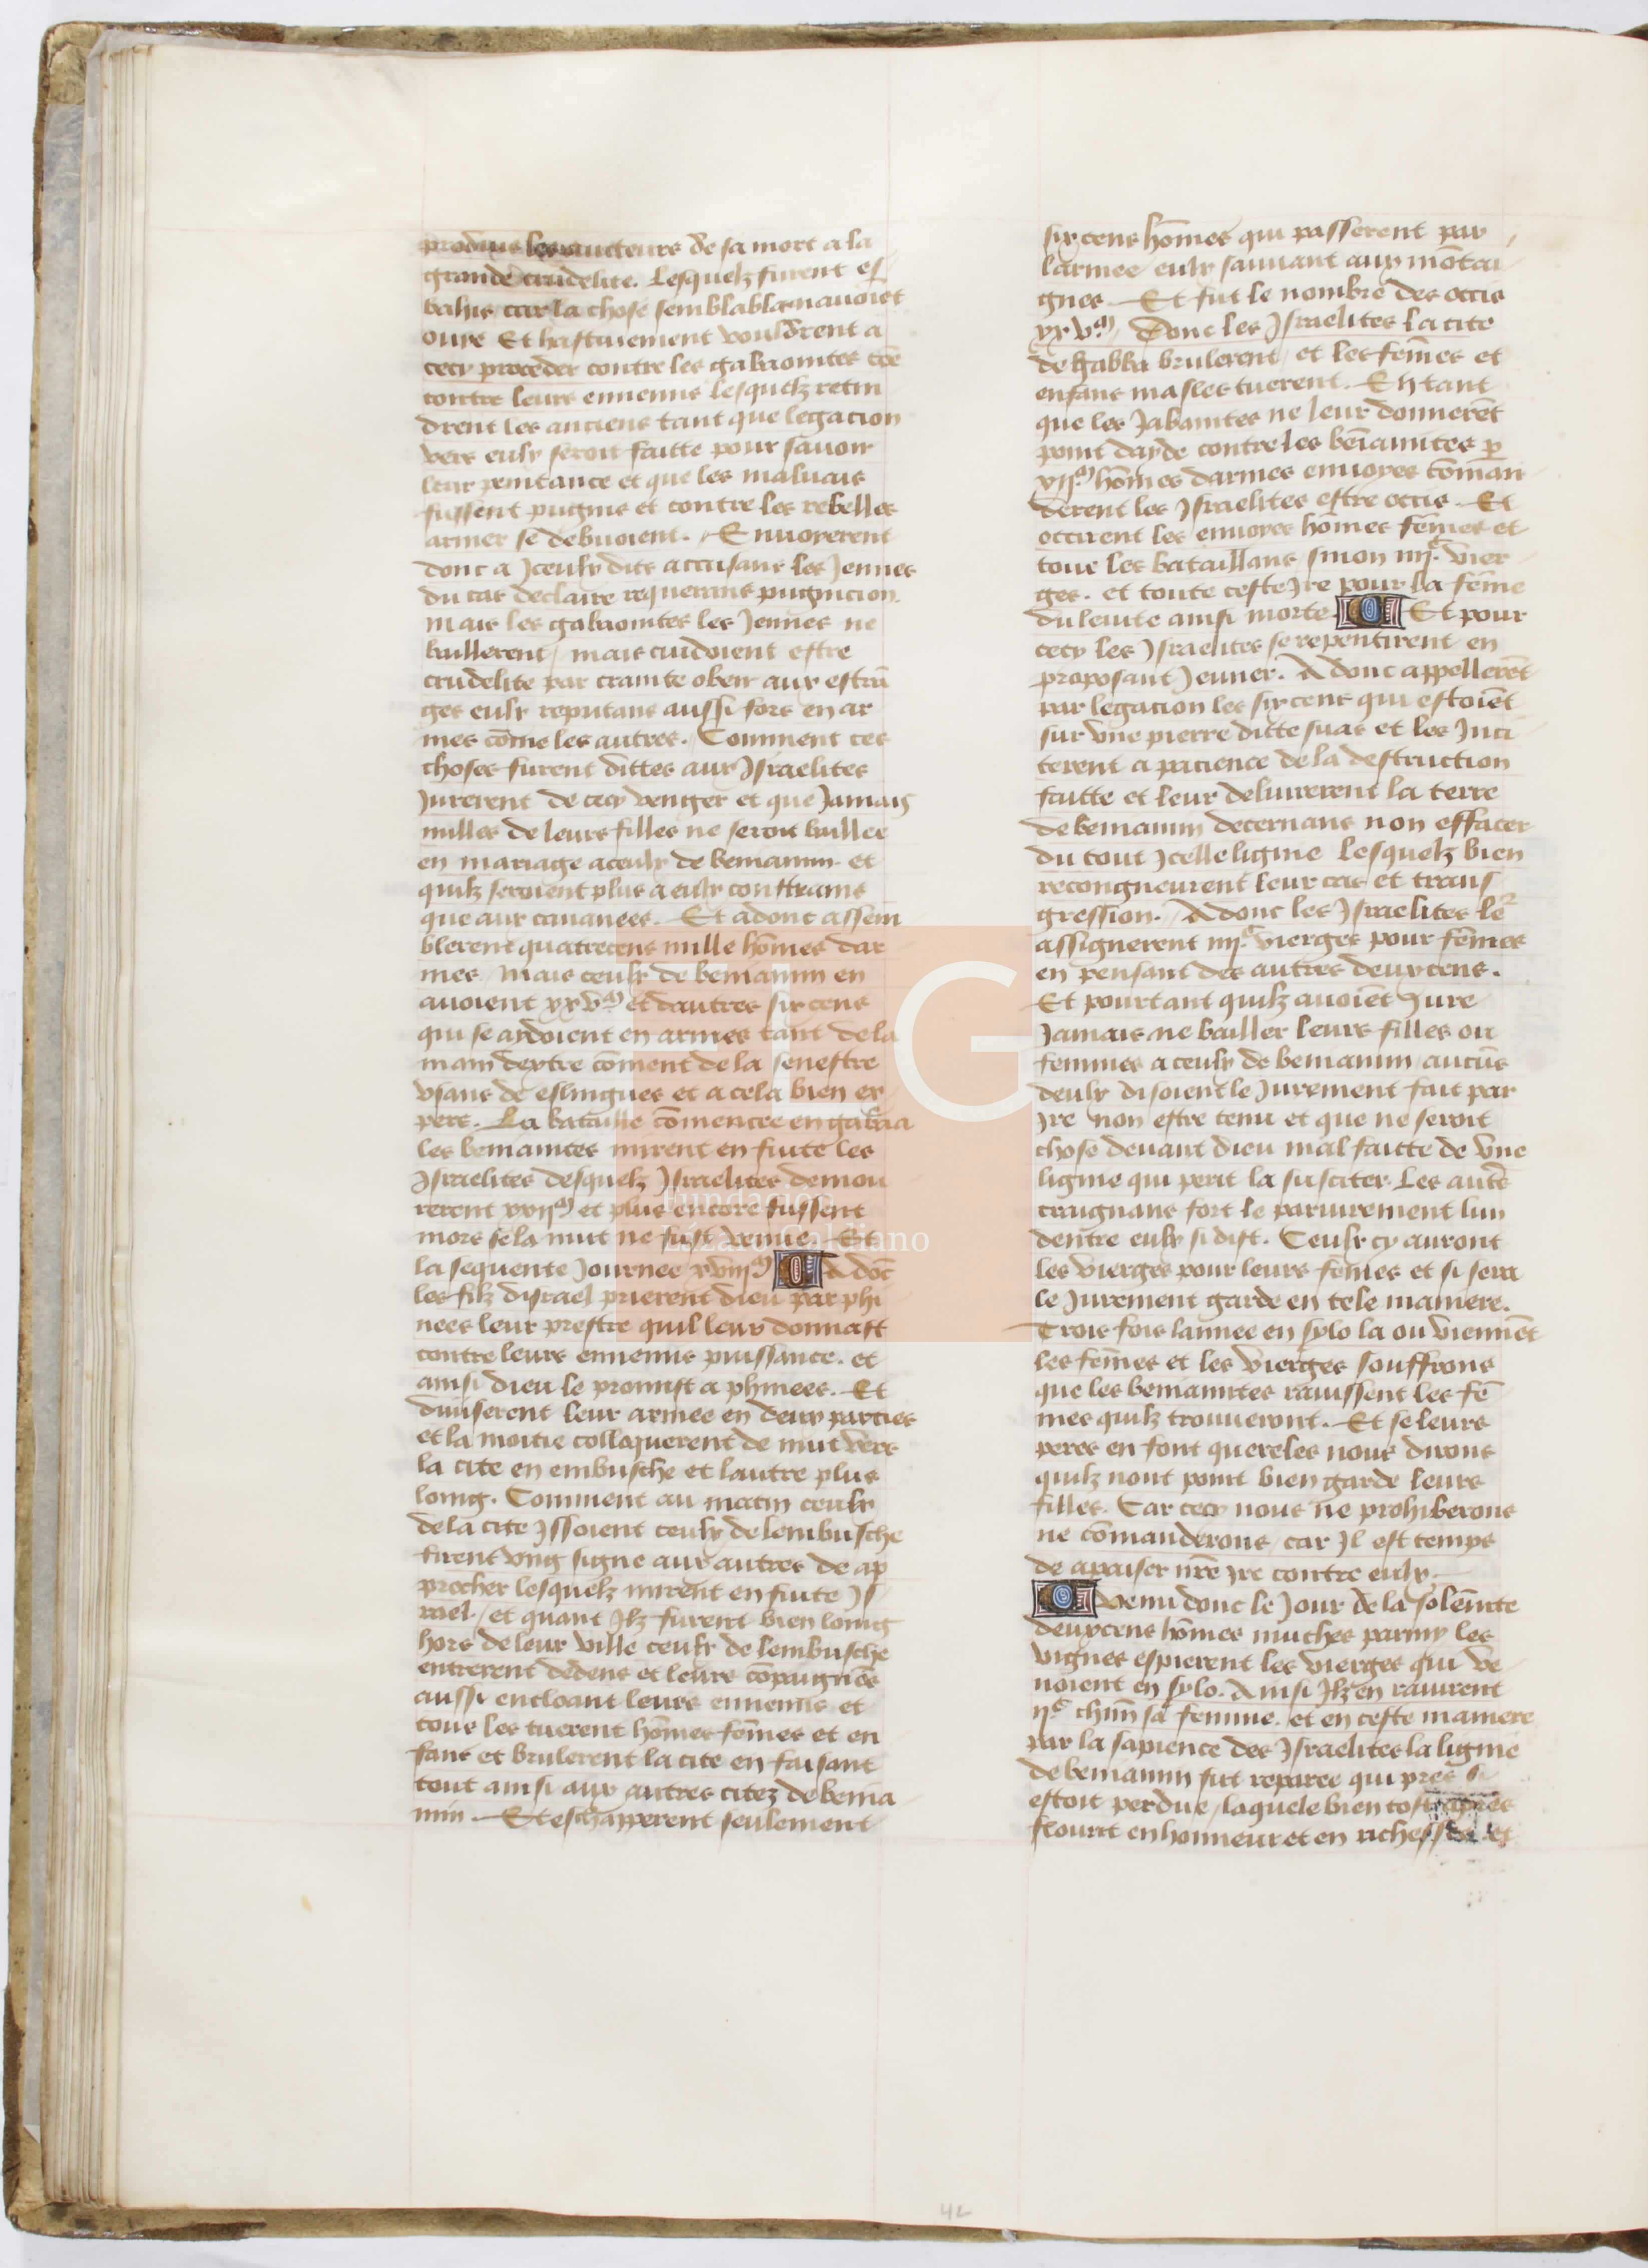 les aucteurs de sa mort a la
grande crudelite. Lesquelz furent es
bahis car la chose semblable nauoiēt
ouye Et hastiuement vouldrent a
cecy proceder contre les gabaonites cōe
contre leurs ennemis lesquelz retin
drent les anciens tant que legacion
vers eulx seroit faitte pour sauoir
leur penitance et que les maluais
fussent pugnis et contre les rebelles
armer se debuoient. Enuoyerent
donc a Jceulx dits accusans les Jennes
du cas declaire requerans pugnicion.
mais les gabaonites les Jennes ne
baillerent / mais cuidoient estre
crudelite par crainte obeir aux estrā
ges eulx reputans aussi fors en ar
mes cōme les autres. Comment ces
choses furent dittes aux Jsraelites
Jurerent de cecy venger et que Jamais
nulles de leurs filles ne seroit baillee
en mariage a ceulx de beniamin et
quilz seroient plus a eulx contrains
que aux cananees. Et adonc assem
blerent quatrecens mille hōmes dar
mes / mais ceulx de beniamin en
auoient xxv.ᵐ et dautres six cens
qui se aydoient en armes tant de la
main dextre cōment de la senestre
vsans de eslingues et a cela bien ex
pers. La bataille cōmencee en gabaa
les beniamites mirent en fuite les
Jsraelites desquelz Jsraelites demou
rerent xxijᵐ et plus encore fussent
mors se la nuit ne fust venue. Et
la sequente Journee xviijᵐ A dōc
les filz disrael prierent dieu par phi
nees leur prestre quil leur donnast
contre leurs ennemis puissance. et
ainsi dieu le promist a phinees. Et
diuiserent leur armee en deux parties
et la moitie colloquerent de nuit vers
la cite en embusche et lautre plus
loing. Comment au matin ceulx
de la cite Jssoient ceulx de lembusche
firent vng signe aux autres de ap
procher lesquelz mirent en fuite Js
rael. / et quant Jlz furent bien loing
hors de leur ville ceulx de lembusche
entrerent dedens et leurs cōpaignōs
aussi encloant leurs ennemis et
tous les tuerent hōmes fēmes et en
fans et brulerent la cite en faisant
tout ainsi aux autres citez de benia
min. Et eschapperent seulement
six cens hōmes qui passerent par
larmee eulx sauuant aux mōtai
gnes. Et fut le nombre des occis
xxv.ᵐ / Donc les Jsraelites la cite
de gabba brulerent / et les fēmes et
enfans masles tuerent. En tant
que les Jabanites ne leur donnerēt
point dayde contre les bēiamites p̄
xijᵐ hōmes darmes enuoyes cōman
derent les Jsraelites estre occis. Et
occirent les enuoyes hōmes fēmes et
tous les bataillans sinon iiijᶜ. vier
ges. et toute ceste Jre pour la fēme
du leuite ainsi morte Et pour
cecy les Jsraelites se repentirent en
proposant Jeuner. A donc appellerēt
par legacion les six cens qui estoiēt
sur vne pierre ditte suas et les Jnci
terent a pacience de la destruction
faitte et leur deliurerent la terre
de beniamin decernans non effacer
du tout Jcelle lignie Lesquelz bien
recongneurent leur cas et trans
gression. A donc les Jsraelites le²
assignerent iiijᶜ vierges pour fēmes
en pensant des autres deux cens.
Et pourtant quilz auoiēt Jure
Jamais ne bailler leurs filles ou
femmes a ceulx de beniamin aucūs
deulx disoient le Jurement fait par
Jre non estre tenu et que ne seroit
chose deuant dieu mal faitte de vne
lignie qui perit la susciter. Les autr̄s
craignans fort le pariurement lun
dentre eulx si dist. Ceulx cy auront
les vierges pour leurs fēmes et si sera
le Jurement garde en tele maniere.
Trois fois lannee en sylo la ou viennēt
les fēmes et les vierges souffrons
que les beniamites rauissent les fē
mes quilz trouueront. Et se leurs
peres en font quereles nous dirons
quilz nont point bien garde leurs
filles. Car cecy nous ne prohiberons
ne cōmanderons / car Jl est temps
de apaiser nr̄e Jre contre eulx.
Venu donc le Jour de la solēnite
deux cens hōmes muches parmy les
vignes espierent les vierges qui ve
noient en sylo. Ainsi Jlz en rauirent
ijᶜ chūn sa femme. et en ceste maniere
par la sapience des Jsraelites la lignie
de beniamin fut reparee qui pres
estoit perdue / laquele bien tost apres
flourit en honneur et en richesses et
42
Fundación
Lázaro Galdiano
G